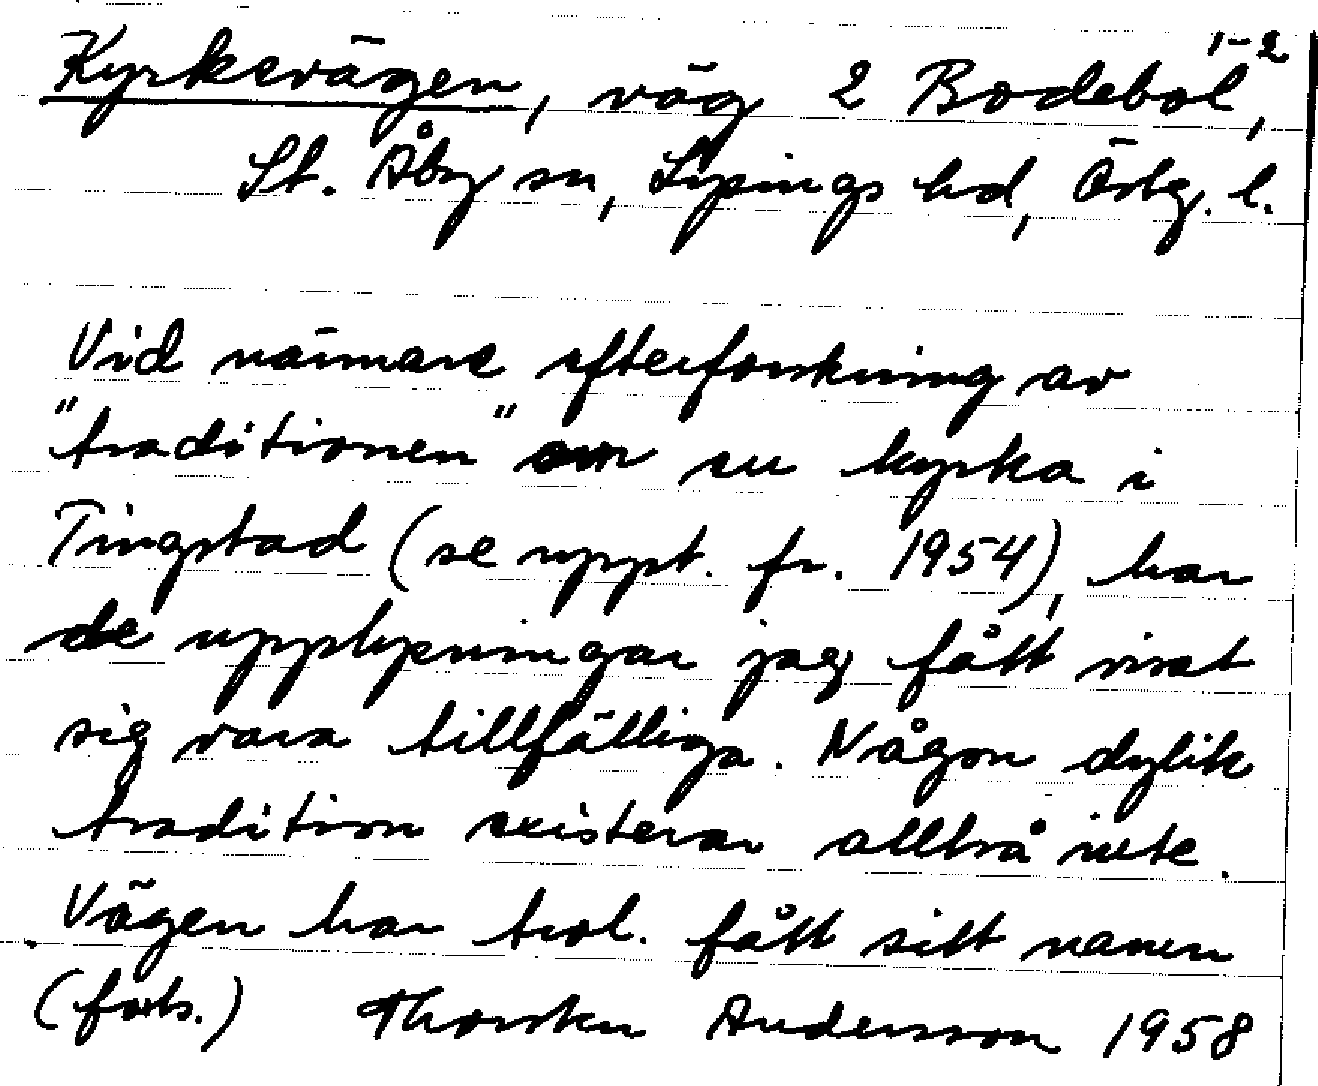 Kyrkevägen, väg 2 Bodebol 1-2,
St. Åby sn, Lysings hd, Östg. l.
Vid närmare efterforskning av
"traditionen" om en kyrka i
Tingstad (se uppt. fr. 1954), har
de upplysningar jag fått visat
sig vara tillfälliga. Någon dylik
tradition existerar alltså inte.
Vägen har trol. fått sitt namn
(forts.) Thorsten Andersson 1958